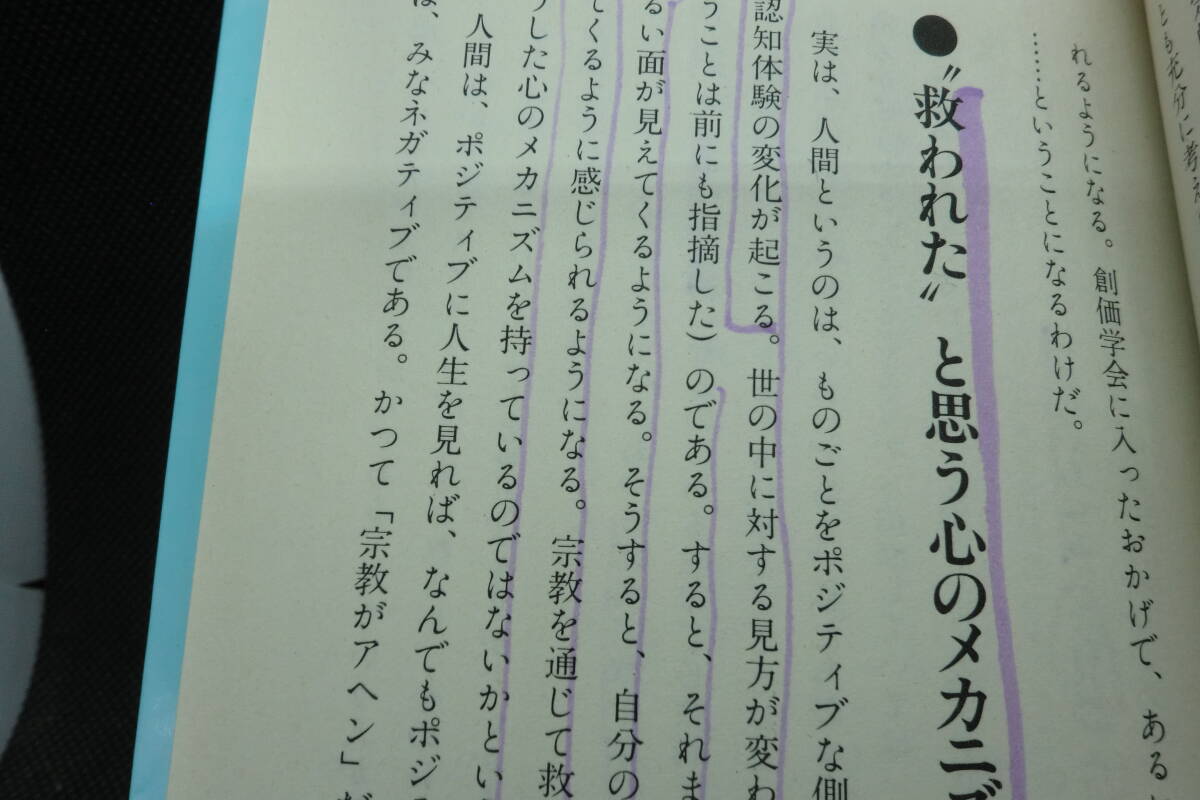 とも充分に考え
れるようになる。創価学会に入ったおかげで、ある
……ということになるわけだ。
●〝救われた〟と思う心のメカニズ
実は、人間というのは、ものごとをポジティブな側
認知体験の変化が起こる。世の中に対する見方が変わ
うことは前にも指摘した)のである。すると、それま
るい面が見えてくるようになる。そうすると、自分の
てくるように感じられるようになる。宗教を通じて救
うした心のメカニズムを持っているのではないかとい
人間は、ポジティブに人生を見れば、なんでもポジ
は、みなネガティブである。かつて「宗教がアヘン」だ